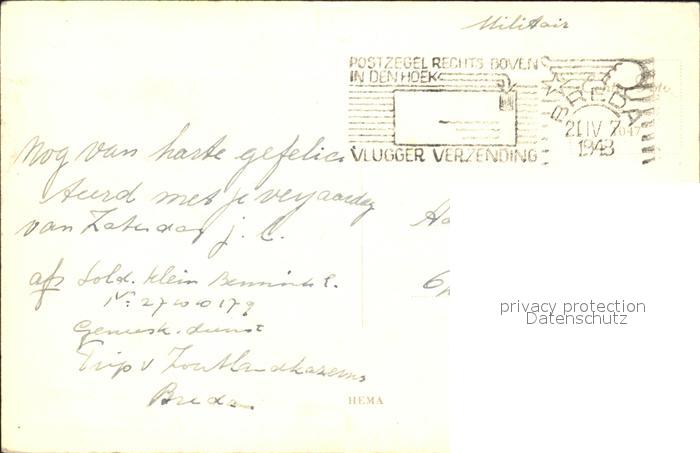 Militair
POSTZEGEL RECHTS BOVEN
IN DEN HOEK
VLUGGER VERZENDING
BREDA
21 IV 7
1948
Nog van harte gefelici
teerd met je verjaardag
van Zaterdag j.l.
afz Sold. Klein
Geneesk. dienst
Trip v Zoutlandkazerne
Breda
HEMA
privacy protection
Datenschutz